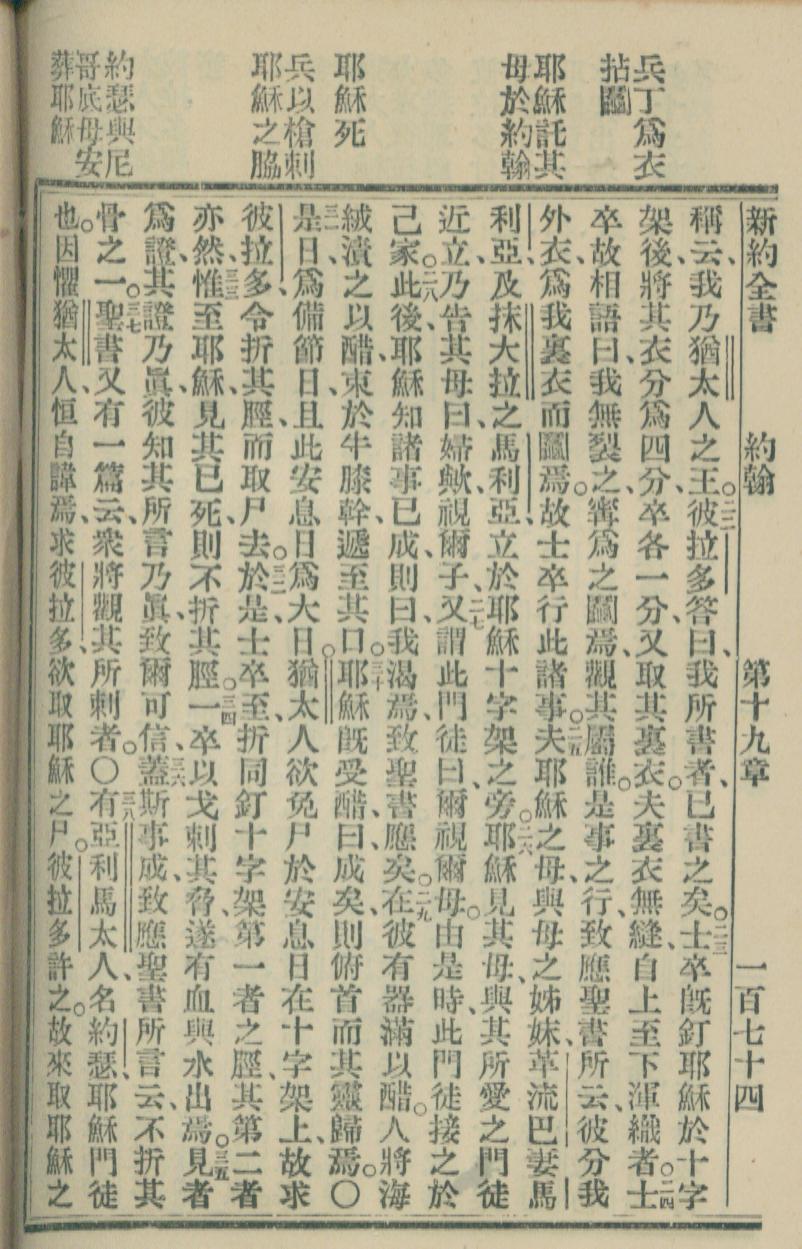 兵丁爲衣
拈鬮
耶穌託其
母於約翰
耶穌死
兵以槍刺
耶穌之脇
約瑟與尼
哥底母安
葬耶穌
新約全書 約翰 第十九章 一百七十四
稱云、我乃猶太人之王。二二彼拉多答曰、我所書者、已書之矣。二三士卒旣釘耶穌於十字
架後、將其衣分爲四分、卒各一分、又取其裏衣。夫裏衣無縫、自上至下渾織者。二四士
卒故相語曰、我無裂之、寗爲之鬮焉、觀其屬誰。是事之行、致應聖書所云、彼分我
外衣、爲我裏衣而鬮焉。故士卒行此諸事。二五夫耶穌之母、與母之姊妹革流巴妻馬
利亞、及抹大拉之馬利亞、立於耶穌十字架之旁。二六耶穌見其母、與其所愛之門徒
近立、乃告其母曰、婦歟、視爾子、二七又謂此門徒曰、爾視爾母。由是時、此門徒接之於
己家。二八此後、耶穌知諸事已成、則曰、我渴焉、致聖書應矣。二九在彼有器滿以醋。人將海
絨漬之以醋、束於牛膝幹、遞至其口。三十耶穌旣受醋、曰、成矣、則俯首而其靈歸焉。〇
三一是日爲備節日、且此安息日爲大日。猶太人欲免尸於安息日在十字架上、故求
彼拉多、令折其脛、而取尸去。三二於是士卒至、折同釘十字架第一者之脛、其第二者
亦然、三三惟至耶穌、見其已死、則不折其脛。三四一卒以戈刺其脅、遂有血與水出焉。三五見者
爲證、其證乃眞、彼知其所言乃眞、致爾可信、三六蓋斯事成、致應聖書所言云、不折其
骨之一。三七聖書又有一篇云、衆將觀其所刺者。〇三八有亞利馬太人、名約瑟、耶穌門徒
也。因懼猶太人、恒自諱焉、求彼拉多、欲取耶穌之尸。彼拉多許之。故來取耶穌之